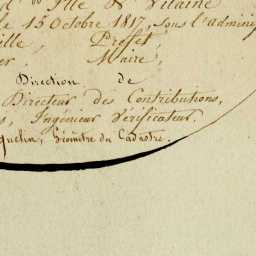 Ille & Vilaine
le 15 Octobre 1817, Sous l'admini
ille, Préfet,
er, Maire,
Direction de
Directeur des Contributions,
s, Ingénieur Vérificateur.
quelin, Géomètre du Cadastre.